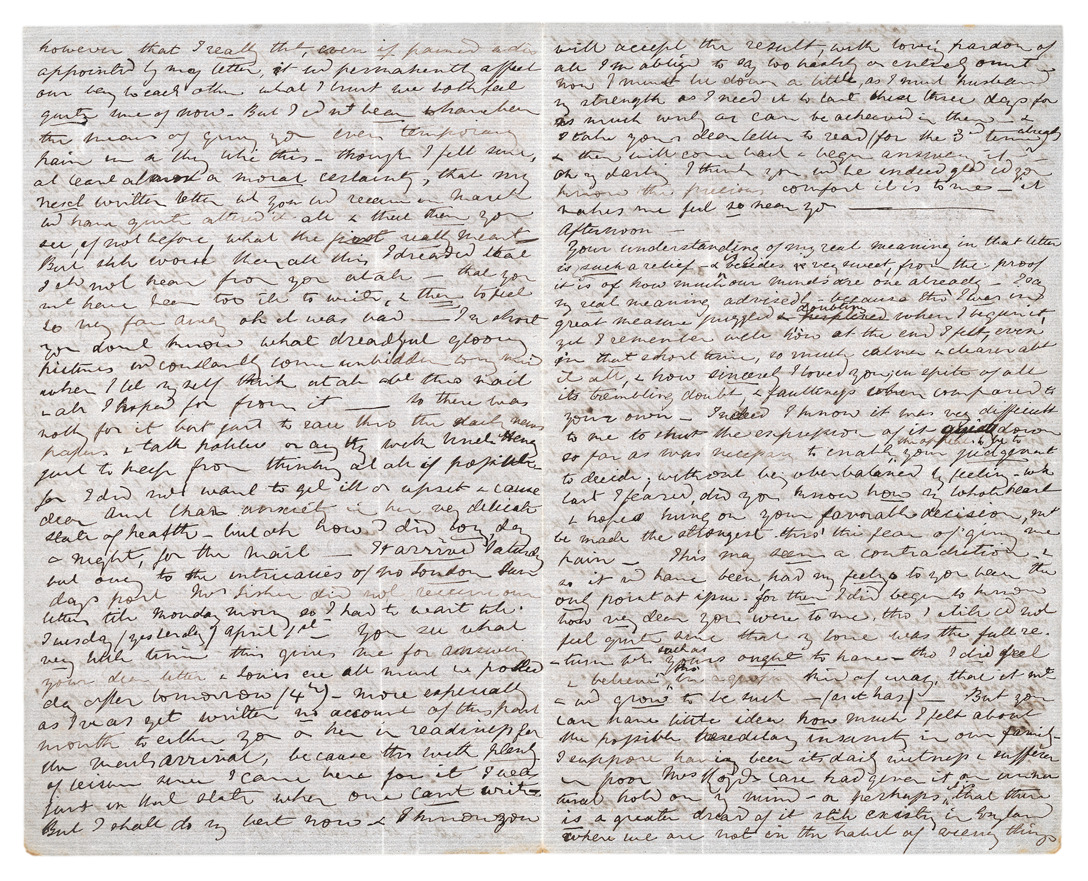 however that I really tht, even if pained &
appointed by my letter, it wd permanently affect
our being to each other what I trust we both feel
quite sure of now. But I cd n't bear to have been
the means of giving you even temporary
pain in a thing like this - though I felt sure,
at least almost a moral certainty, that my
next written letter wh you wd receive in March
wd have quite altered it all & that then you
see, if not before, what the first really meant
But still worse than all this, I dreaded that
I shd not hear from you at all - that you
wd have been too ill to write, & then to feel
so very far away oh it was bad — In short
you don't know what dreadful gloomy
pictures wd constantly come unbidden into my mind
when I let myself think at all abt this mail
& all I hoped for from it — so there was
nothg for it but just to race thro' the daily news
papers & talk politics or anythg with Uncle
just to keep from thinking at all if possible
for I did not want to get ill or upset & cause
dear Aunt Char anxiety in her very delicate
state of health - but oh how I did long day
& night, for the mail — It arrived Saturday
but owing to the intricacies of no London Sun
days post Mrs Sisher did not receive our
letters till Monday morng so I had to wait till
Tuesday (yesterday) April 1st - you see what
very little time this gives me for answering
your dear letter & Louis'
day after tomorrow (4th) - more especially
as I've as yet written no account of this past
month to either you or her in readiness for
the mails arrival, because tho with plenty
of leisure since I came here for it I was
just in that state when one can't write
But I shall do my best now & I know you
will accept the result, with loving pardon of
all I'm oblige to say too hastily or entirely omit
now I must lie down a little, as I must husband
my strength as I need it to last these three days for
as much writg as can be achieved in them - &
I take your dear letter to read (for the 3rd time already)
& then will come back & begin answering it -
oh my darling I think you wd be indeed glad if you
know the precious comfort it is to me - it
makes me feel so near you —
Afternoon -
Your understanding of my real meaning in that letter
is such a relief & besides is very sweet, from the proof
it is of how much our minds are one already - I say
my real meaning advisedly - because tho I was in a
great measure puzzled & doubting when I began it
yet I remember well how at the end I felt, even
in that short time, so much calmer & clearer abt
it all, & how sincerely I loved you in spite of all
its trembling doubt & faultiness when compared to
your own - Indeed I know it was very difficult
to me to shut the expression of it down
so far as was necessary to enable your judgement
to decide, without being overbalanced by feeling - wh
last I feared, did you know how my whole heart
& hopes hung on your favorable decision, mt
be made the strongest thro' the fear of giving me
pain - This may seem a contradiction, &
so it wd have been had my feelgs to you been the
only point at issue - for then I did begin to know
how very dear you were to me, tho' I still cd not
feel quite sure that my love was the full re-
-turn wh such as yours ought to have - tho I did feel
& believe kind of way, that it wd
& wd grow to be such - (as it has) - But you
can have little idea how much I felt about
the possible hereditary insanity in our family
I suppose having been its daily witness & sufferer
in poor Mrs Lloyd's case had given it an unna
tural hold on my mind - or perhaps, that there
is a greater dread of it still existing in England
where we are not in the habit of seeing things